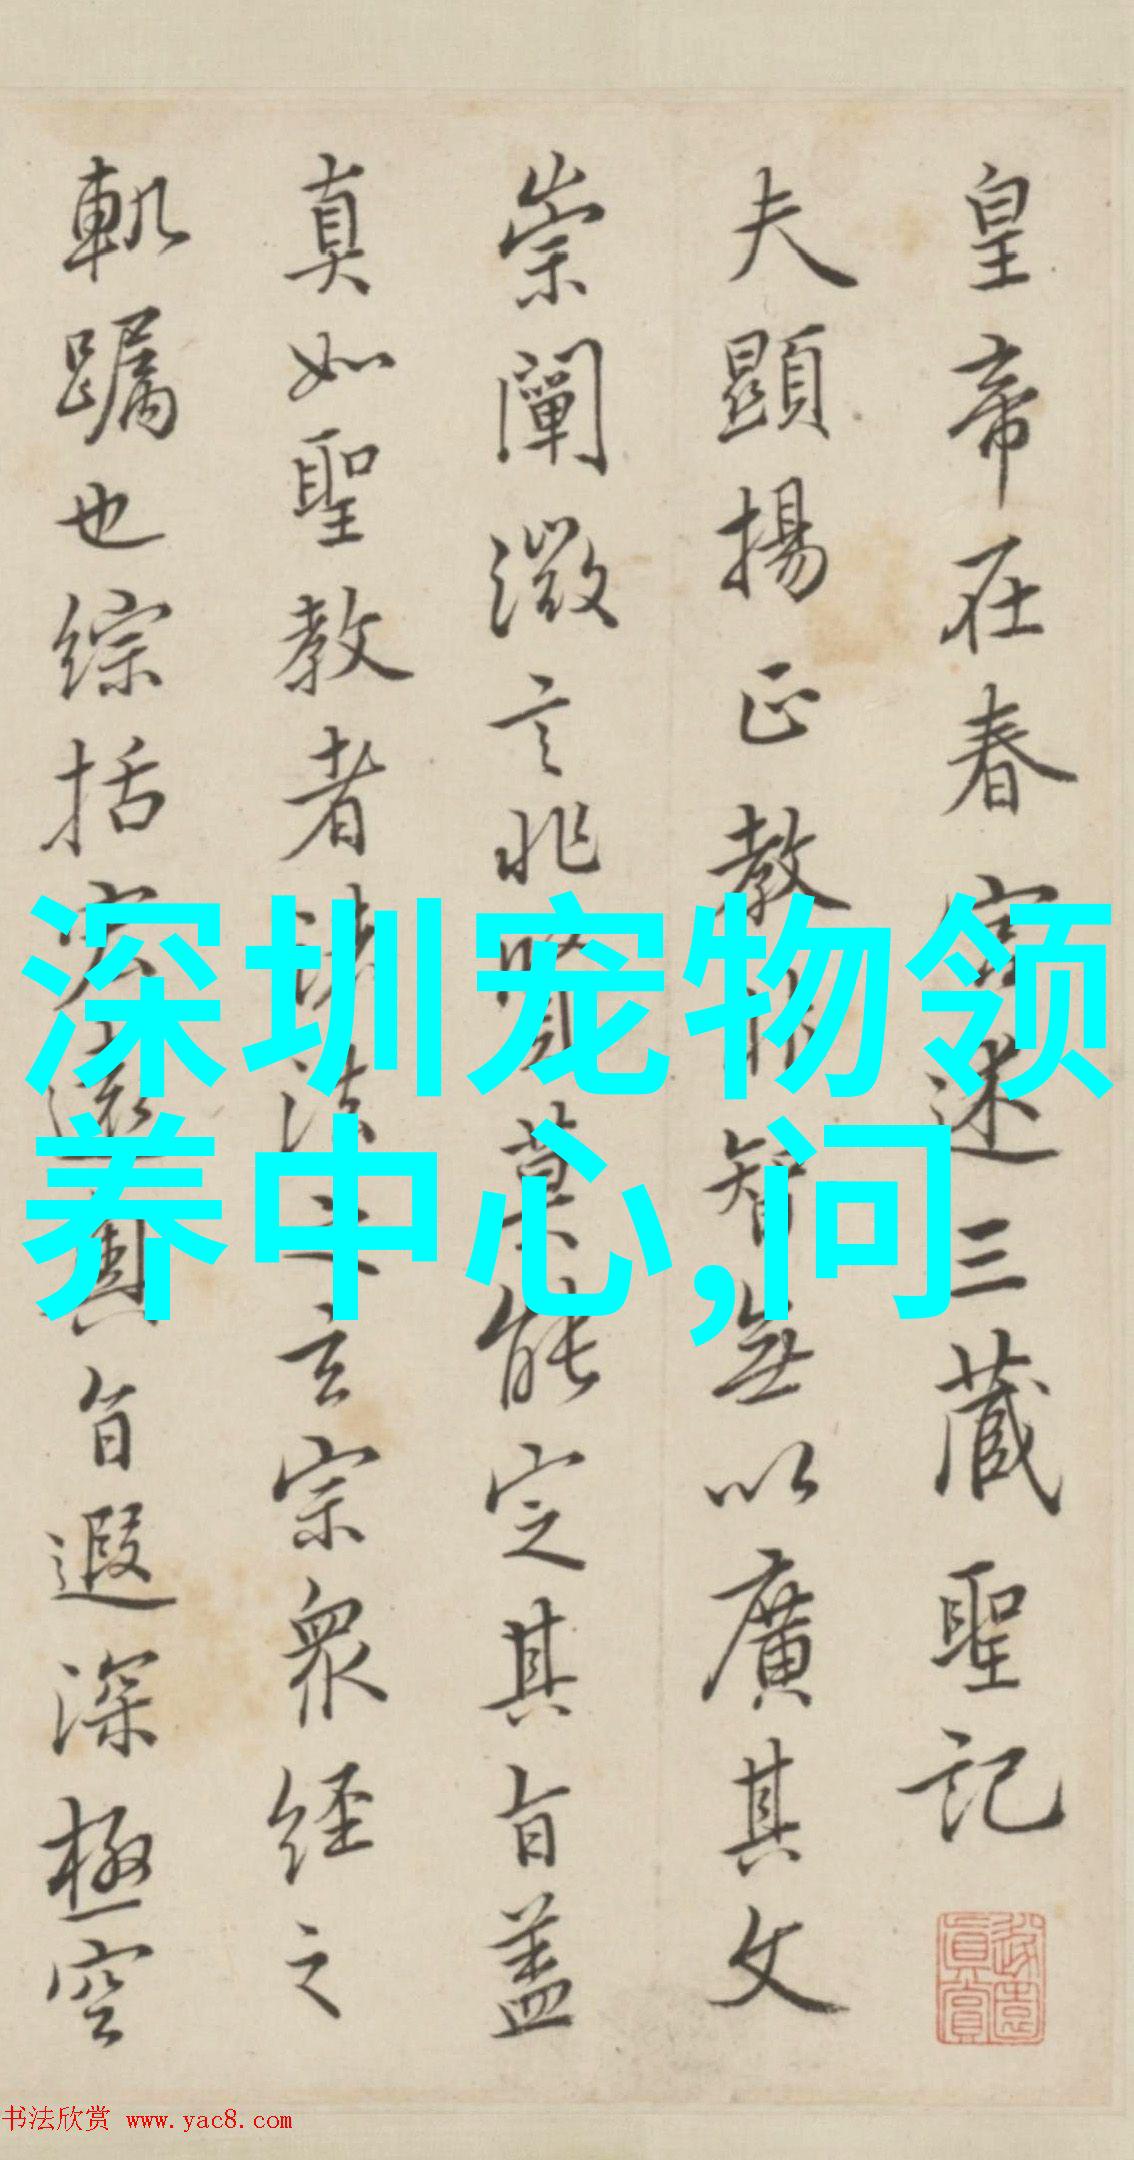 皇帝在春宮述三藏聖記
夫顯揚正教非智無以廣其文
崇闡微言非賢莫能定其旨蓋
真如聖教者諸法之玄宗衆経之
軌躅也綜括宏遠奧旨遐深極空
深圳宠物领
养中心,问
书法欣赏 www.yac8.com